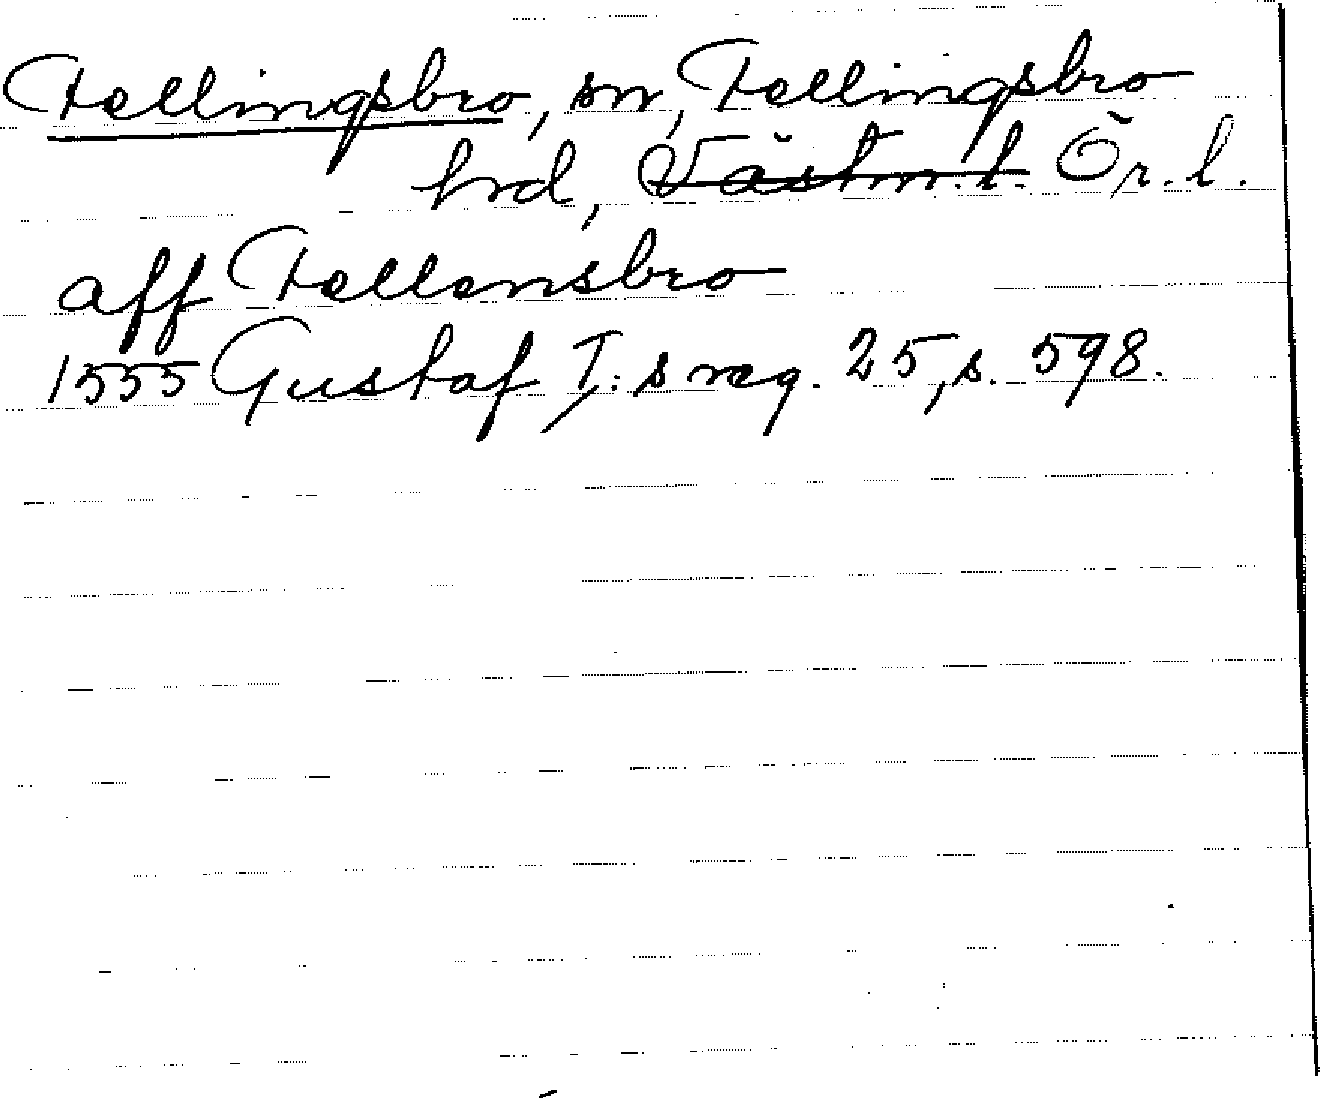 Fellingsbro, sn, Fellingsbro
hrd, Västm.l. Ör.l.
aff Fellensbro
1555 Gustaf I:s reg. 25, s. 598.